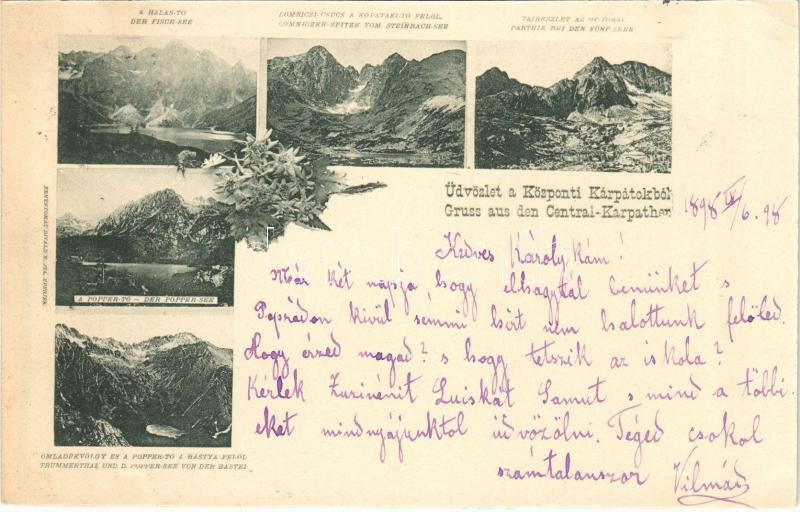 A HALAS-TÓ
DER FISCH-SEE
LOMNICZI-CSÚCS A KŐPATAKI-TÓ FELŐL.
LOMNICZER-SPITZE VOM STEINBACH-SEE
TAJRÉSZLET AZ ÖT TÓNÁL
PARTHIE BEI DEN FÜNF SEEN
A POPPER-TÓ – DER POPPER-SEE
OMLADÉKVÖLGY ÉS A POPPER-TÓ A BÁSTYA FELŐL
TRÜMMERTHAL UND D. POPPER-SEE VON DER BASTEI
Üdvözlet a Központi Kárpátokból
Gruss aus den Central-Karpathen
1898 IX/6. 98
Kedves Károlykám!
Már két napja hogy elhagytál benünket s
Poprádon kivül semmi hirt nem halottunk felöled.
Hogy érzed magad? s hogy tetszik az iskola?
Kérlek Zsuzsinénit Luiskát Samut s mind a többi
eket mindnyájunktol üdvözölni. Téged csokol
számtalanszor Vilmád